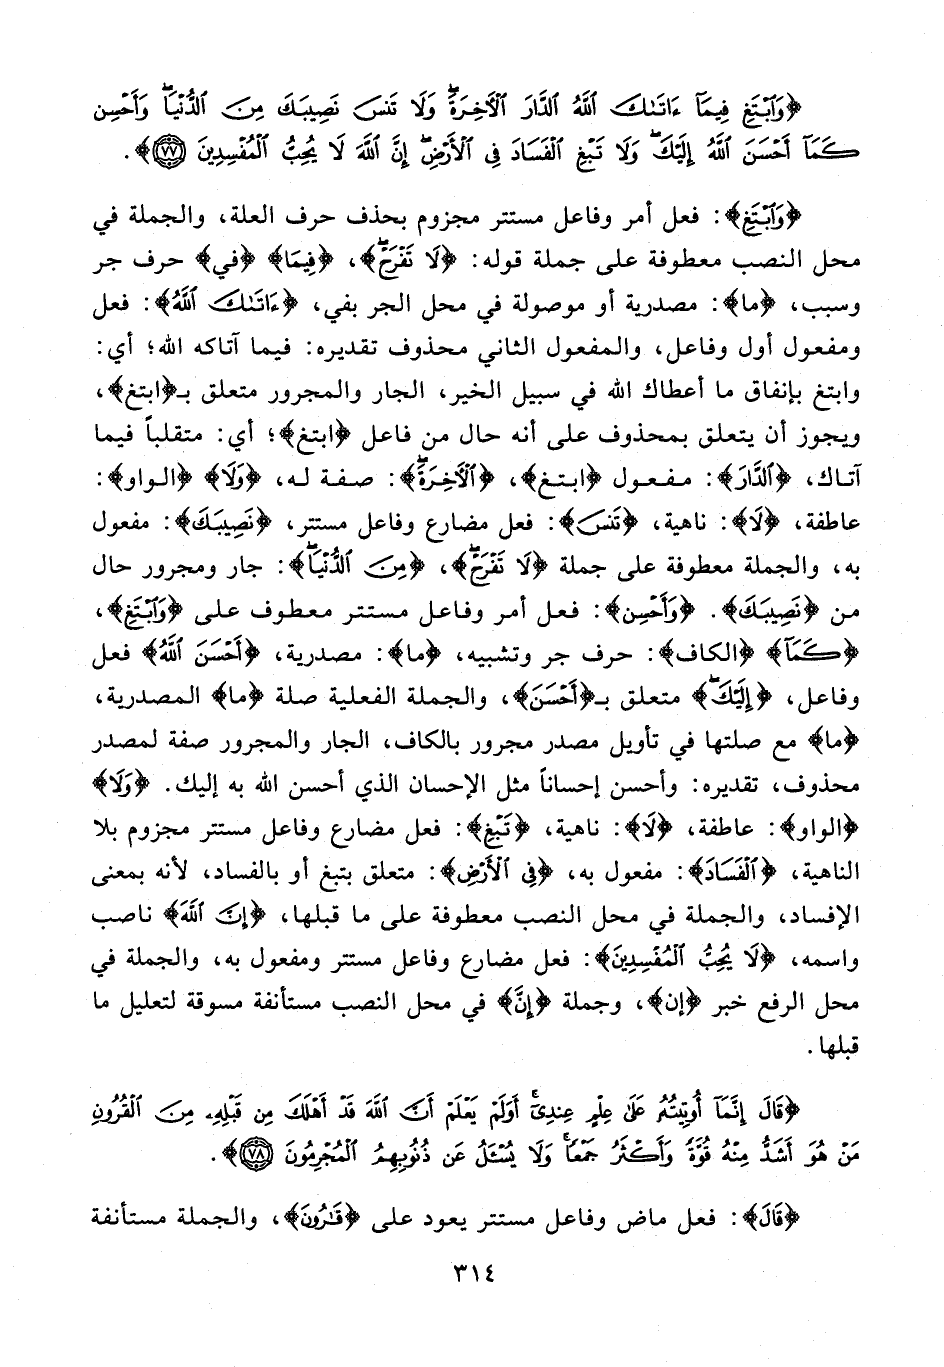 ﴿وَٱبْتَغِ فِيمَآ ءَاتَىٰكَ ٱللَّهُ ٱلدَّارَ ٱلْءَاخِرَةَ ۖ وَلَا تَنسَ نَصِيبَكَ مِنَ ٱلدُّنْيَا ۖ وَأَحْسِن
كَمَآ أَحْسَنَ ٱللَّهُ إِلَيْكَ ۖ وَلَا تَبْغِ ٱلْفَسَادَ فِى ٱلْأَرْضِ ۖ إِنَّ ٱللَّهَ لَا يُحِبُّ ٱلْمُفْسِدِينَ ٧٧﴾.
﴿وَٱبْتَغِ﴾: فعل أمر وفاعل مستتر مجزوم بحذف حرف العلة، والجملة في
محل النصب معطوفة على جملة قوله: ﴿لَا تَفْرَحْ ۖ﴾، ﴿فِيمَا﴾ ﴿في﴾ حرف جر
وسبب، ﴿ما﴾: مصدرية أو موصولة في محل الجر بفي، ﴿ءَاتَىٰكَ ٱللَّهُ﴾: فعل
ومفعول أول وفاعل، والمفعول الثاني محذوف تقديره: فيما آتاكه الله؛ أي:
وابتغ بإنفاق ما أعطاك الله في سبيل الخير، الجار والمجرور متعلق بـ﴿ابتغ﴾،
ويجوز أن يتعلق بمحذوف على أنه حال من فاعل ﴿ابتغ﴾؛ أي: متقلباً فيما
آتاك، ﴿ٱلدَّارَ﴾: مفعول ﴿ابتغ﴾، ﴿ٱلْءَاخِرَةَ ۖ﴾: صفة له، ﴿وَلَا﴾ ﴿الواو﴾:
عاطفة، ﴿لَا﴾: ناهية، ﴿تَنسَ﴾: فعل مضارع وفاعل مستتر، ﴿نَصِيبَكَ﴾: مفعول
به، والجملة معطوفة على جملة ﴿لَا تَفْرَحْ ۖ﴾، ﴿مِنَ ٱلدُّنْيَا ۖ﴾: جار ومجرور حال
من ﴿نَصِيبَكَ﴾. ﴿وَأَحْسِن﴾: فعل أمر وفاعل مستتر معطوف على ﴿وَٱبْتَغِ﴾،
﴿كَمَآ﴾ ﴿الكاف﴾: حرف جر وتشبيه، ﴿ما﴾: مصدرية، ﴿أَحْسَنَ ٱللَّهُ﴾ فعل
وفاعل، ﴿إِلَيْكَ ۖ﴾ متعلق بـ﴿أَحْسَنَ﴾، والجملة الفعلية صلة ﴿ما﴾ المصدرية،
﴿ما﴾ مع صلتها في تأويل مصدر مجرور بالكاف، الجار والمجرور صفة لمصدر
محذوف، تقديره: وأحسن إحساناً مثل الإحسان الذي أحسن الله به إليك. ﴿وَلَا﴾
﴿الواو﴾: عاطفة، ﴿لَا﴾: ناهية، ﴿تَبْغِ﴾: فعل مضارع وفاعل مستتر مجزوم بلا
الناهية، ﴿ٱلْفَسَادَ﴾: مفعول به، ﴿فِى ٱلْأَرْضِ﴾: متعلق بتبغ أو بالفساد، لأنه بمعنى
الإفساد، والجملة في محل النصب معطوفة على ما قبلها، ﴿إِنَّ ٱللَّهَ﴾ ناصب
واسمه، ﴿لَا يُحِبُّ ٱلْمُفْسِدِينَ﴾: فعل مضارع وفاعل مستتر ومفعول به، والجملة في
محل الرفع خبر ﴿إن﴾، وجملة ﴿إِنَّ﴾ في محل النصب مستأنفة مسوقة لتعليل ما
قبلها.
﴿قَالَ إِنَّمَآ أُوتِيتُهُۥ عَلَىٰ عِلْمٍ عِندِىٓ ۚ أَوَلَمْ يَعْلَمْ أَنَّ ٱللَّهَ قَدْ أَهْلَكَ مِن قَبْلِهِۦ مِنَ ٱلْقُرُونِ
مَنْ هُوَ أَشَدُّ مِنْهُ قُوَّةً وَأَكْثَرُ جَمْعًا ۚ وَلَا يُسْـَٔلُ عَن ذُنُوبِهِمُ ٱلْمُجْرِمُونَ ٧٨﴾.
﴿قَالَ﴾: فعل ماض وفاعل مستتر يعود على ﴿قَـٰرُونَ﴾، والجملة مستأنفة
٣١٤